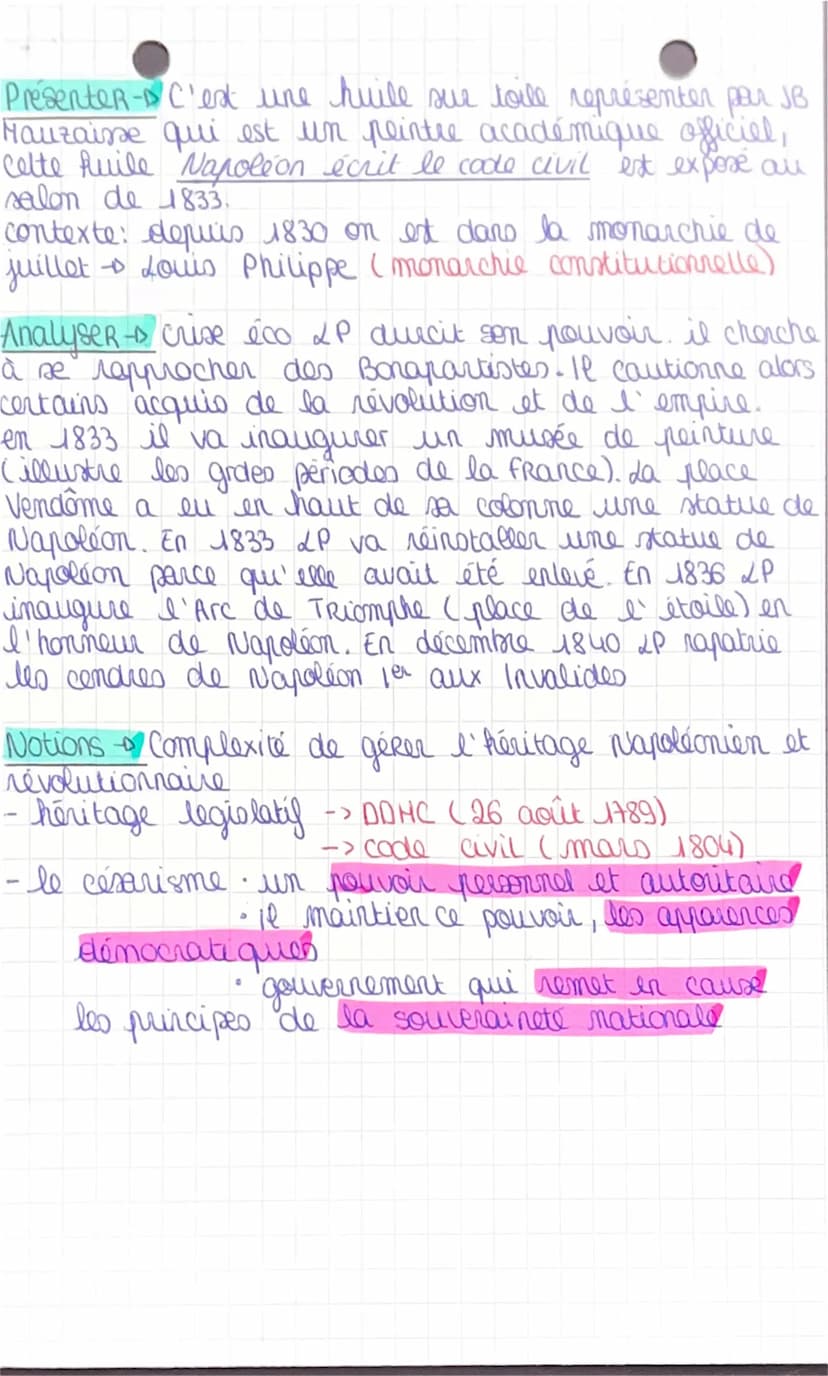 Présenter -> C'est une huile sur toile représenter par JB
Mauzaisse qui est un peintre académique officiel,
Cette huile Napoléon écrit le code civil est exposé au
salon de 1833.
contexte: depuis 1830 on est dans la monarchie de
juillet -> Louis Philippe (monarchie constitutionnelle)
Analyser -> Crise éco LP durcit son pouvoir. il cherche
à se rapprocher des Bonapartistes. Il cautionne alors
certains acquis de la révolution et de l'empire.
en 1833 il va inaugurer un musée de peinture
(illustre les grdes périodes de la France). La place
Vendôme a eu en haut de sa colonne une statue de
Napoléon. En 1833 LP va réinstaller une statue de
Napoléon parce qu'elle avait été enlevé. En 1836 LP
inaugure l'Arc de Triomphe (place de l'étoile) en
l'honneur de Napoléon. En décembre 1840 LP rapatrie
les cendres de Napoléon 1er aux Invalides
Notions -> Complexité de gérer l'héritage Napoléonien et
révolutionnaire
- héritage legislatif -> DDHC (26 août 1789)
-> code civil (mars 1804)
- le césarisme · un pouvoir personnel et autoritaire
· il maintien ce pouvoir, les apparences
démocratiques
· gouvernement qui remet en cause
les principes de la souveraineté nationale